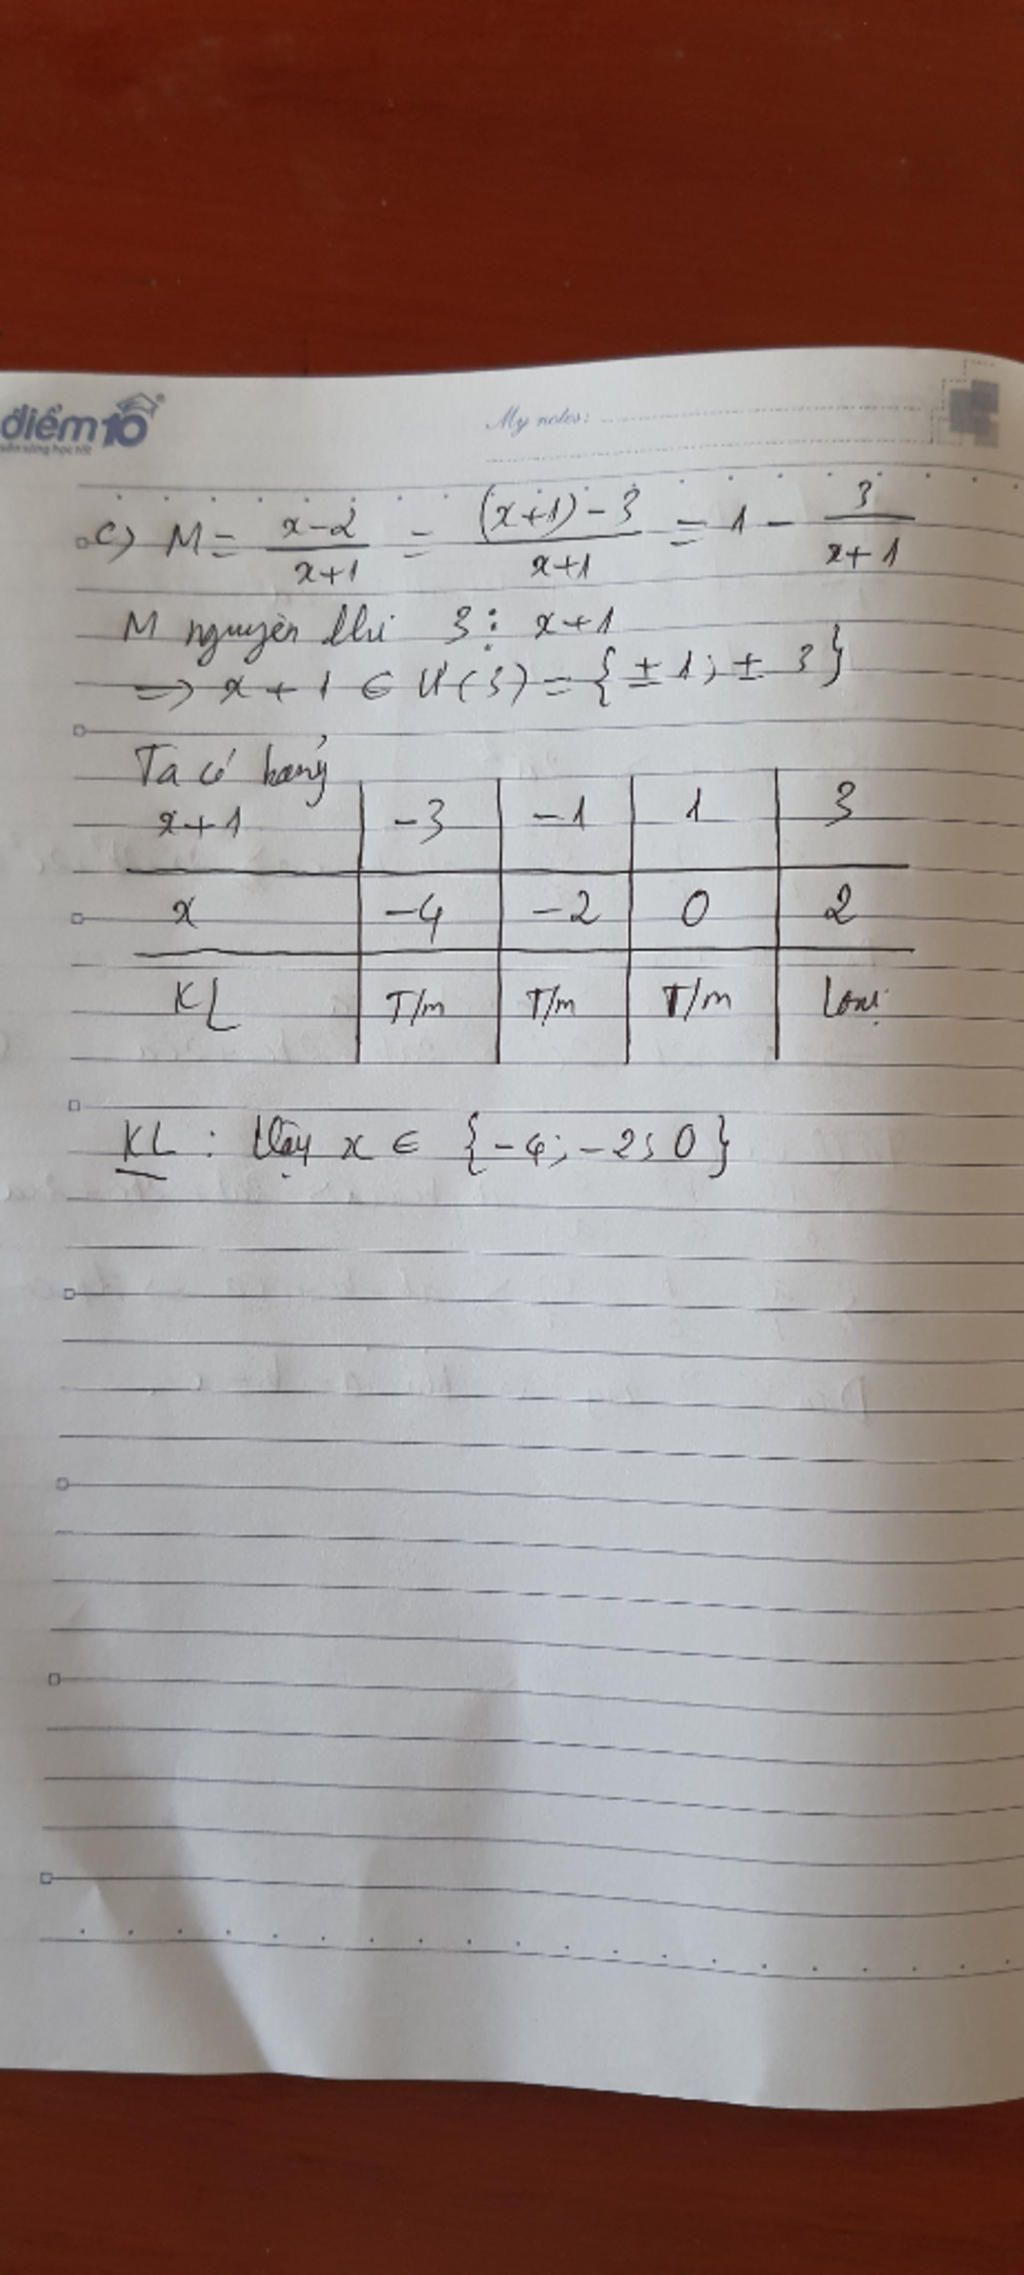 điểm10
sẵn sàng học tốt
My notes:
c) M = \frac{x-2}{x+1} = \frac{(x+1)-3}{x+1} = 1 - \frac{3}{x+1}
M nguyên khi 3 ⋮ x+1
=> x + 1 ∈ Ư(3) = {± 1; ± 3}
Ta có bảng
x+1 | -3 | -1 | 1 | 3
x | -4 | -2 | 0 | 2
KL | T/m | T/m | T/m | Loại
KL : Vậy x ∈ {-4; -2; 0}